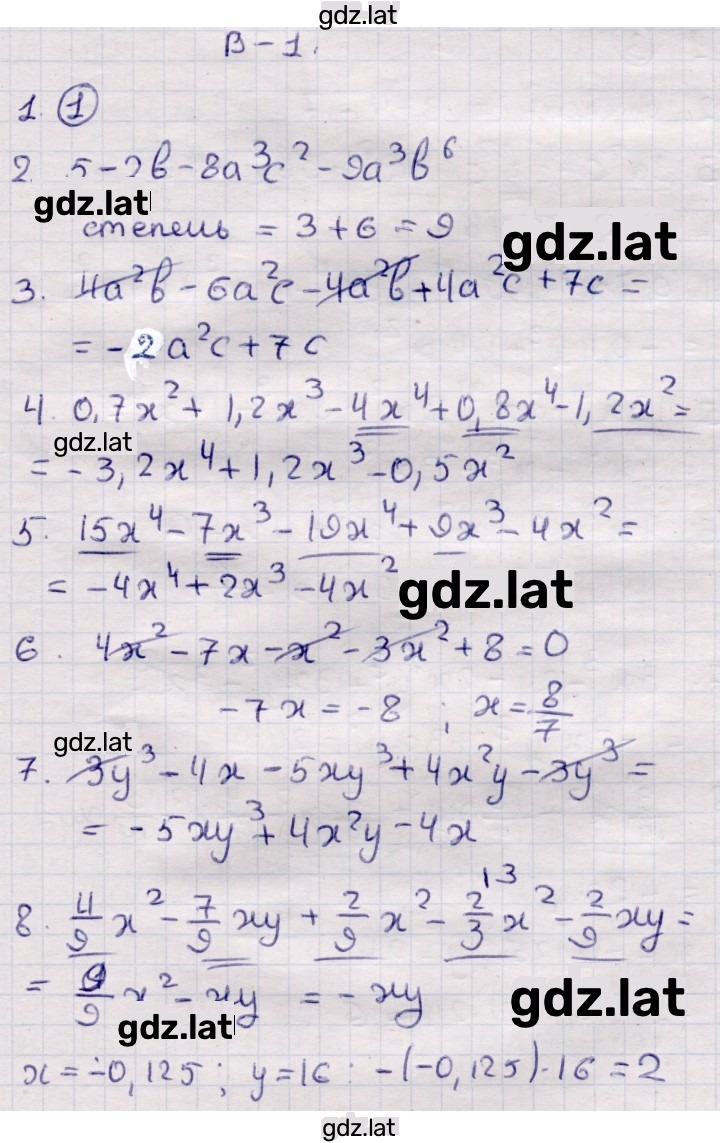 gdz.lat
В-1.
1. ①
2. 5-2b-8a³c²-9a³b⁶
gdz.lat
степень = 3+6 = 9
gdz.lat
3. 4a²b-6a²c-4a²b+4a²c+7c=
= -2a²c+7c
4. 0,7x²+1,2x³-4x⁴+0,8x⁴-1,2x²=
gdz.lat
= -3,2x⁴+1,2x³-0,5x²
5. 15x⁴-7x³-19x⁴+9x³-4x²=
= -4x⁴+2x³-4x²
gdz.lat
6. 4x²-7x-x²-3x²+8=0
-7x=-8 ; x=8/7
gdz.lat
7. 3y³-4x-5xy³+4x²y-3y³=
= -5xy³+4x²y-4x
8. 4/9x²-7/9xy+2/9x²-2/3|3x²-2/9xy=
= 0/9x²-xy = -xy
gdz.lat
gdz.lat
x=-0,125; y=16: -(-0,125)·16=2
gdz.lat